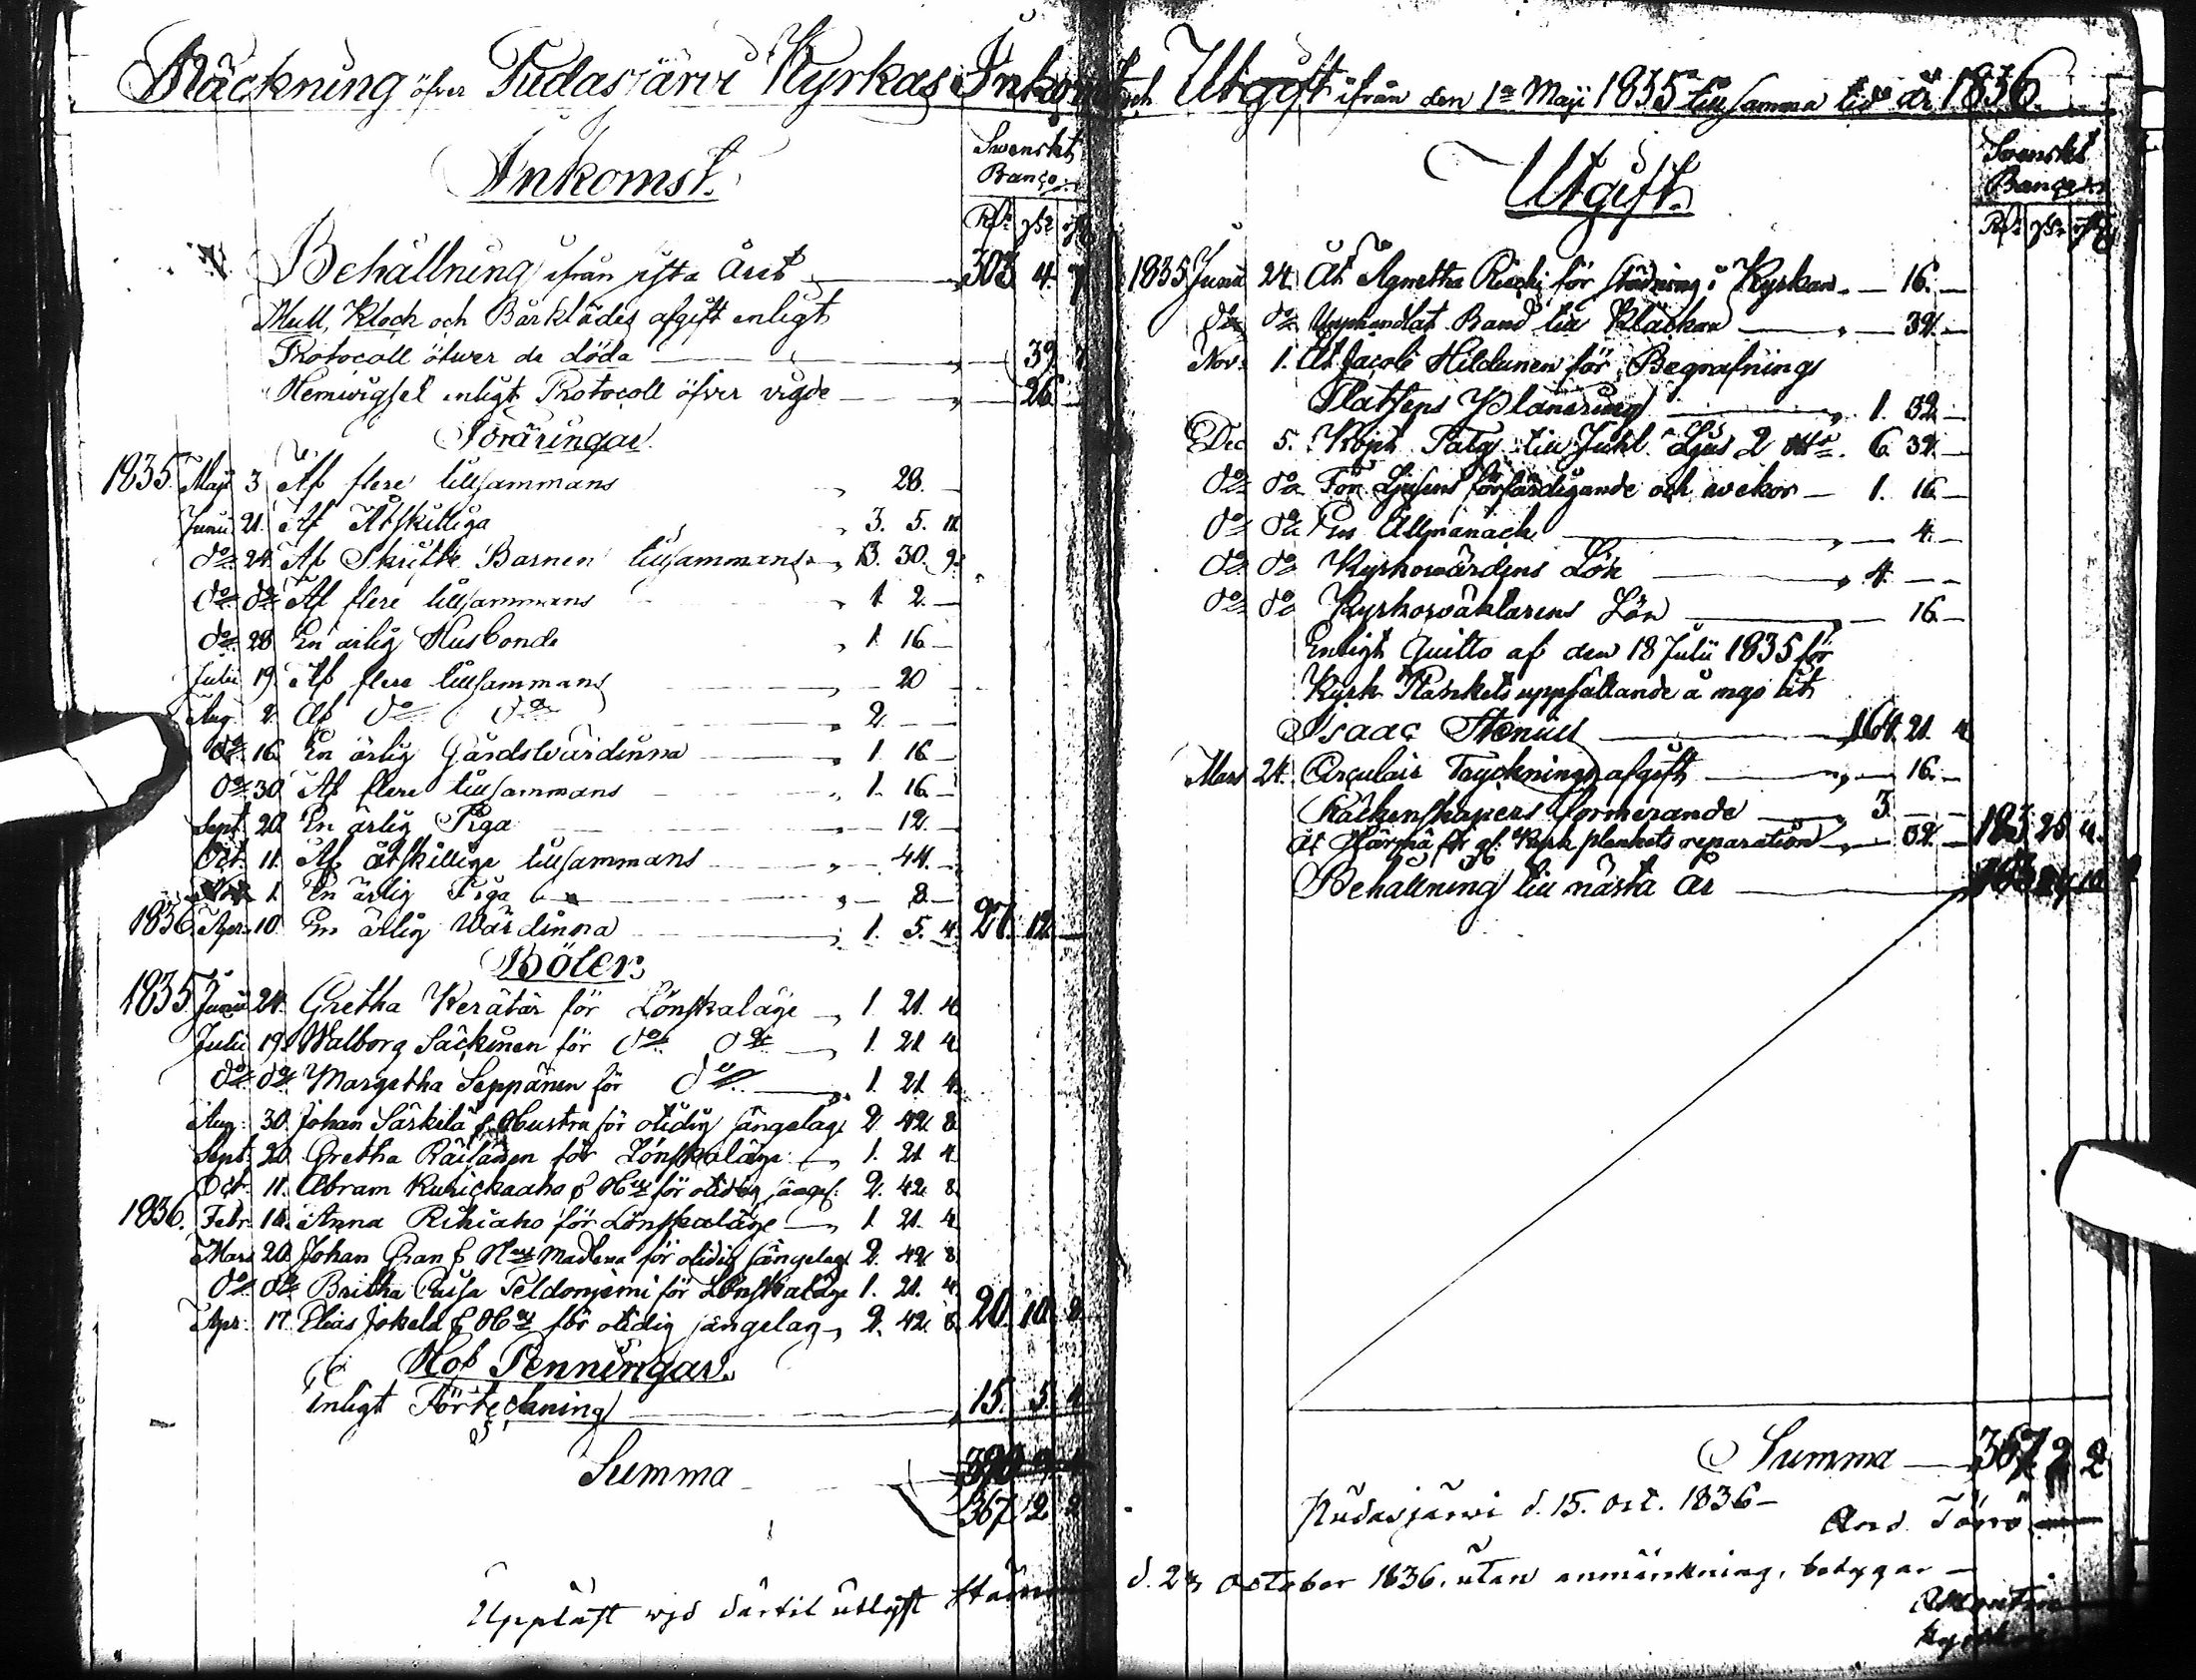 Räckning öfver Pudasjärvi Kyrkas Inkomst och Utgift ifrån den 1a Maji 1835 till samma tid år 1836.
Inkomst.
Swenskt
Banco
Rd. sk. rst
Behållning ifrån sista Året 303 4 7
Mull, Klock och Bårklädes afgift enligt
Protocoll öfwer de döda 39 7
Hemvigsel enligt Protocoll öfver vigde 26 –
Föräringar.
1835. Maji 3 Af flere tillsammans 28. –
Junii 21. Af Åtskilliga 3. 5. 11.
do 24 Af Skrifte Barnen tillsammans 13. 30. 9.
do do Af flere tillsammans 1 2. –
do 28 En ärlig Husbonde 1 16 –
Julii 19. Af flere tillsammans 20
Aug. 2. Af do do 2. – –
do 16 En ärlig Gårdswärdinna 1 16 –
do 30 Af flere tillsammans 1. 16. –
Sept. 20 En ärlig Piga 12. –
Oct. 11. Af åtskillige tillsammans 44. –
Nov. 1 En ärlig Piga 8. –
1836. Apr. 10 En ärlig Wärdinna 1. 5. 4. 27. 12. –
Böter.
1835. Junii 24. Gretha Kerätär för Lönskaläge 1 21. 4.
Julii 19. Walborg Säckinen för do do 1. 21 4.
do do Margetha Seppänen för do 1. 21 4.
Aug. 30. Johan Särkelä & Hustru för otidig sängelag 2 42 8
Sept. 20 Gretha Räisänen för Lönskaläge 1. 21 4.
Oct. 11. Abram Kurickaaho & Hus för otidig sängel. 2. 42 8.
1836. Febr. 14. Anna Rihiaho för Lönskaläge 1 21. 4.
Mars 20. Johan Gran & Hus Madlena för otidig sängelag 2. 42 8
do do Britha Caisa Feldonjemi för Lönskaläge 1. 21. 4.
Apr. 17. Elias Jokela & Hus för otidig sängelag 2. 42. 8. 20. 10. 8.
Hof Penningar.
Enligt Förteckning 15. 5. 4
Summa
367 2 2
Uppläst wid därtil utlyst Stäm
Utgift.
Svenskt
Banco
Rd. sk. rst
1835 Junii 24. Åt Agnetha Riecki för städning i Kyrkan 16. –
do do Upphandlat Band till Kläckan 32. –
Nov. 1. Åt Jacob Hildunen för Begrafnings
Platsens Planering 1. 32. –
Dec 5. Köpt Talg till Juhl Ljus 2 6. 32. –
do do För Ljusens förfärdigande och wekor – 1. 16 –
do do En Allmanach 4. –
do do Kyrkowärdens Lön 4. – –
do do Kyrkowäktarens Lön 16. –
Enligt Quitto af den 18 Julii 1835 för
Kyrk Plankets uppsättande å mgo åt
Isaac Stenius 164. 21. 4
Mars 24. Circulair Tryckningsafgift 16. –
Räkenskapens formerande 3. – –
Åt Härmä för gl. Kyrk plankets reparation 32. – 183 25 4.
Behållning till nästa år
Summa 367 2 2
Pudasjärvi d. 15. Oct. 1836 –
And. Törnö
d. 23 October 1836. utan anmärkning, betygar –